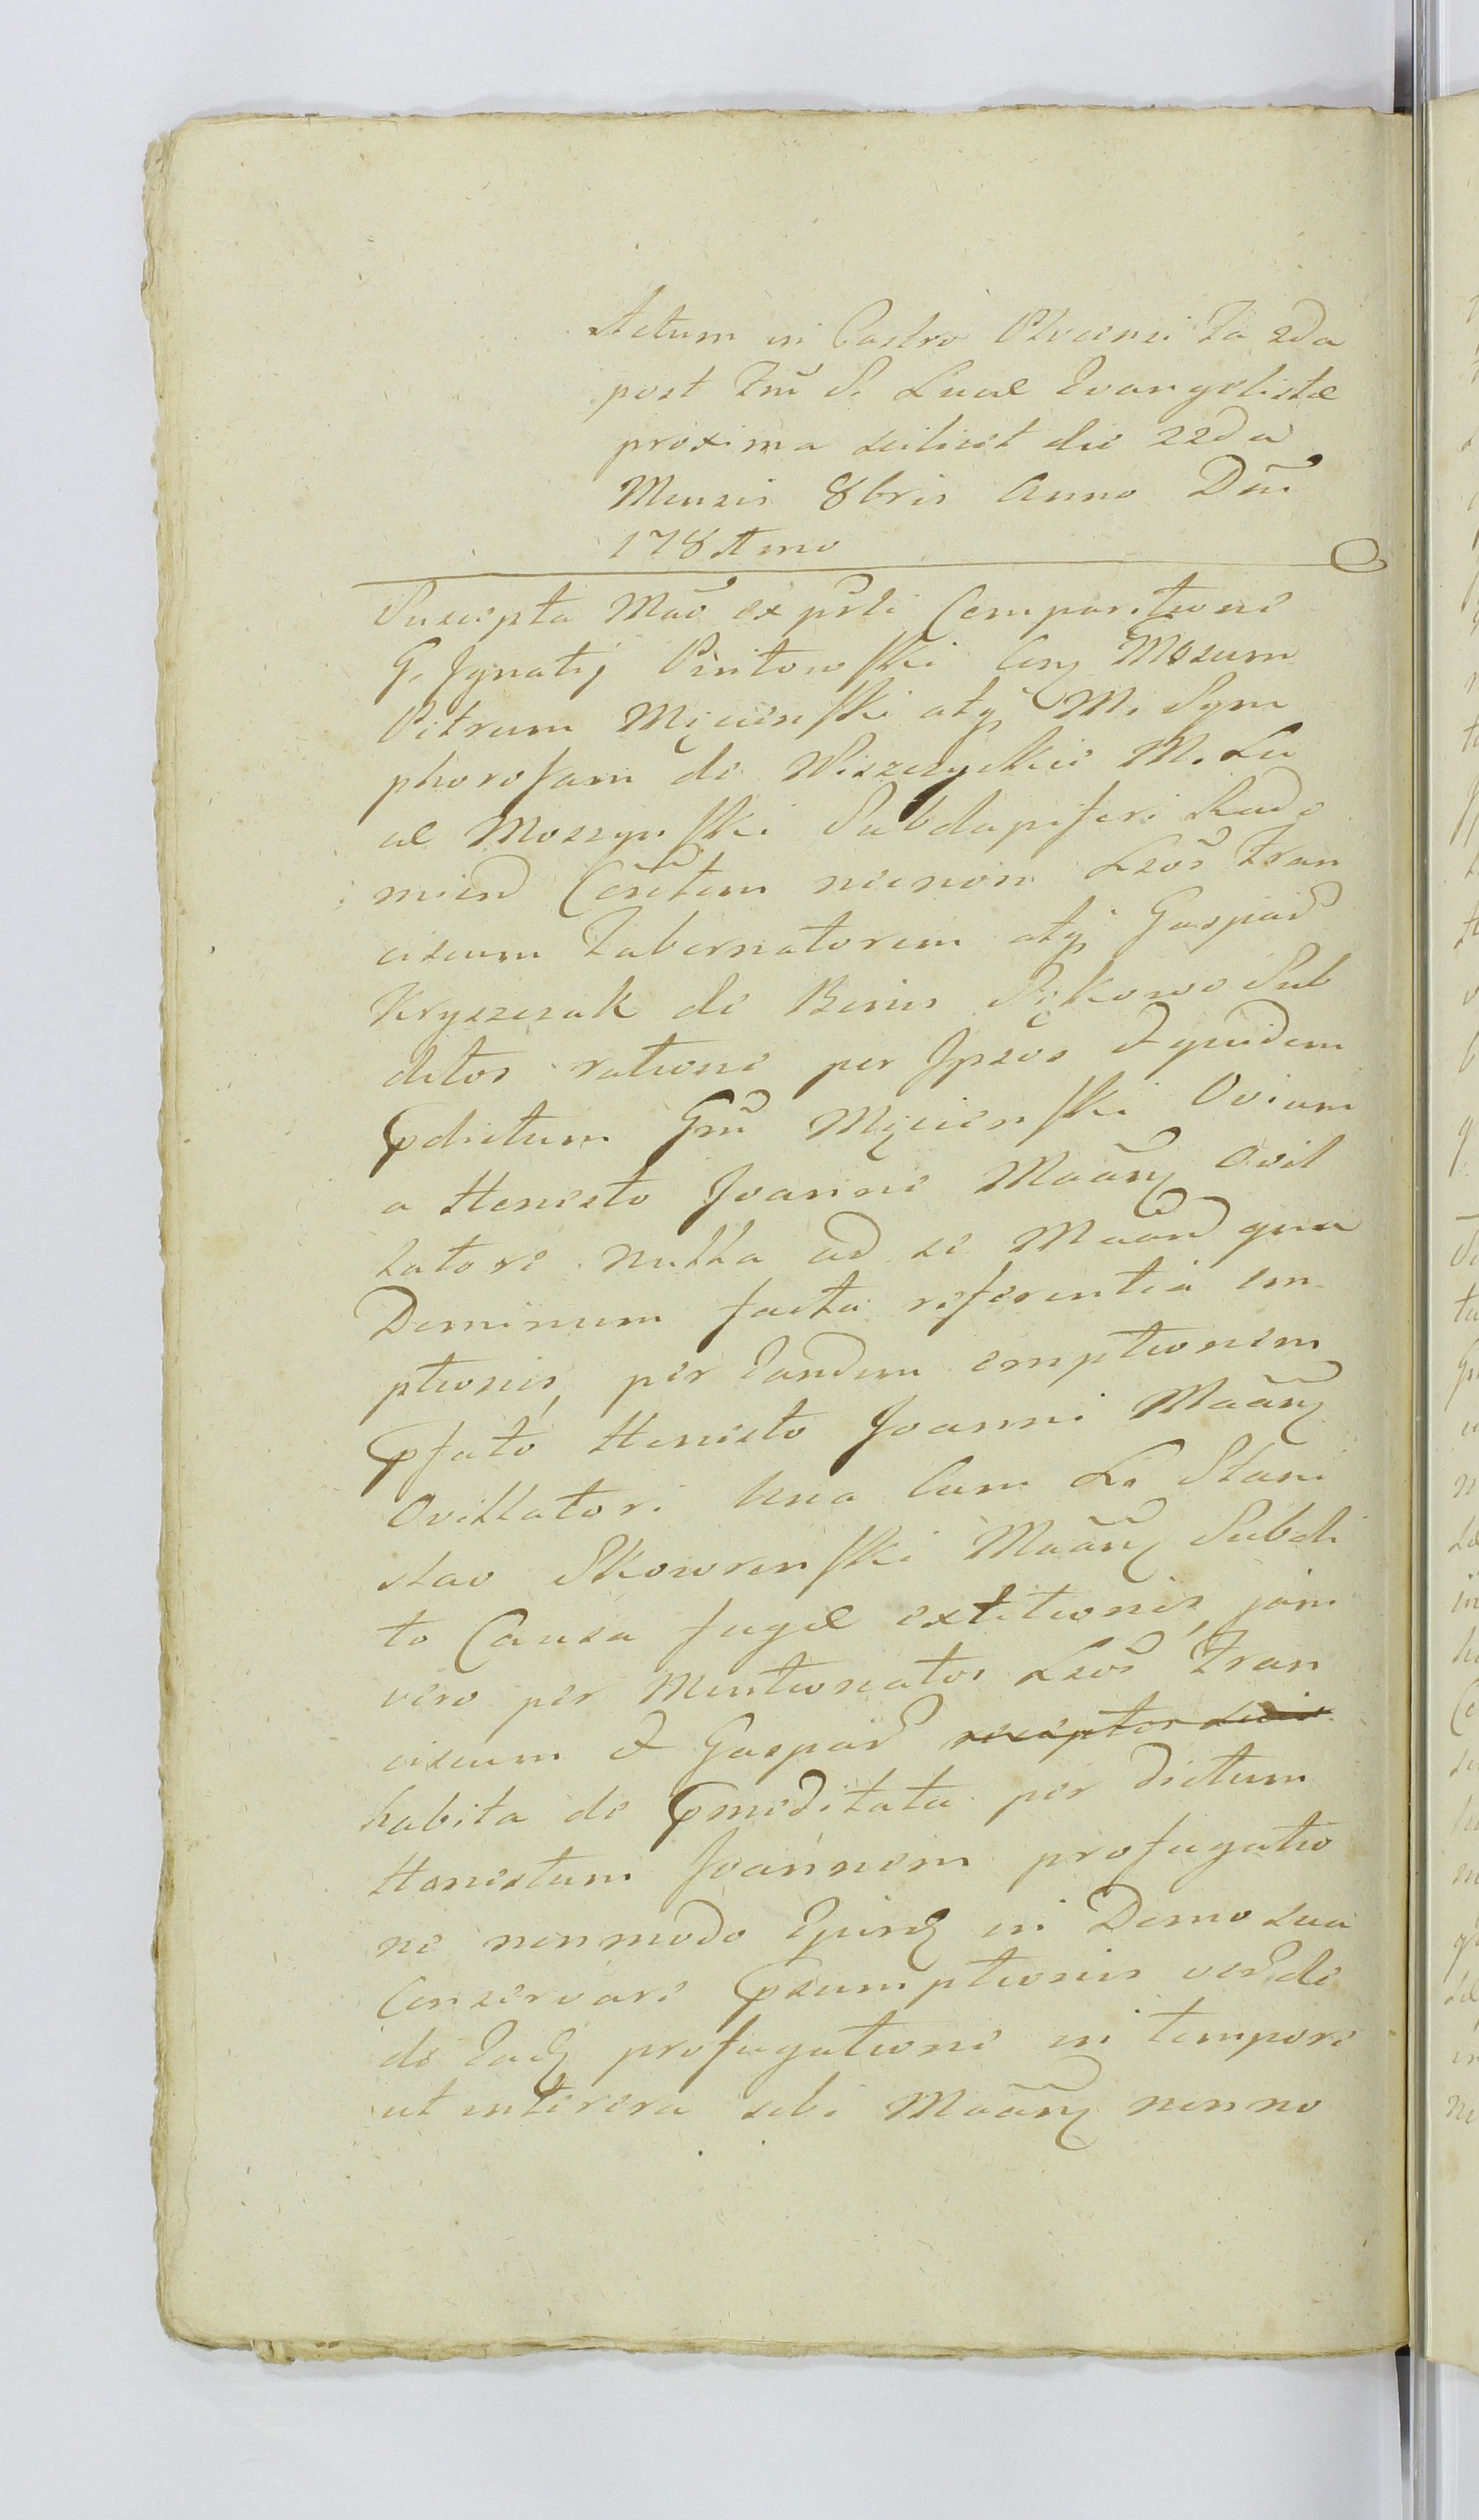 Actum in Castro Plocensi Fa 2da
post Fm̃ S. Lucæ Evangelistæ
proxima scilicet die 22da
Mensis 8bris Anno Dnĩ
178
Suscepta Mač ex pñti Comparitione
G. Ignatij Pintowski
Petrum Mięcienski atq̃ M. Sym
phorosam de Wiszczyckie M. Lu
cæ Moszynski Subdapiferi Rado
miens Consortem necnon Lsos Fran
ciscum Tabernatorem atq̃ Gaspar
Kryszczak de Bonis Pękowo Sub
ditos ratione per Ipsos & quidem
Prdictum Grm̃ Mięcienski Ovium
a Honesto Joanne Maãnẽ Ovil
latore nulla ad se Maãn qua
Dominum facta referentia em
ptionis, per Eandem emptionem
Prfato Honesto Joanni Maãnẽ
Ovillatori una Cum L. Stani
slao Skowronski Maãnẽ Subdi
to Causa fugæ extitionis, jam
vero per Mentionatos Lsos Fran
ciscum & Gaspar receptor
habita de Prmeditata per dictum
Honestum Joannem profugatio
ne nonmodo Equis in Domo sua
Conservare Prsumptionis
de Eadẽ profugatione in tempore
ut intererea sibi Maãnẽ nonno